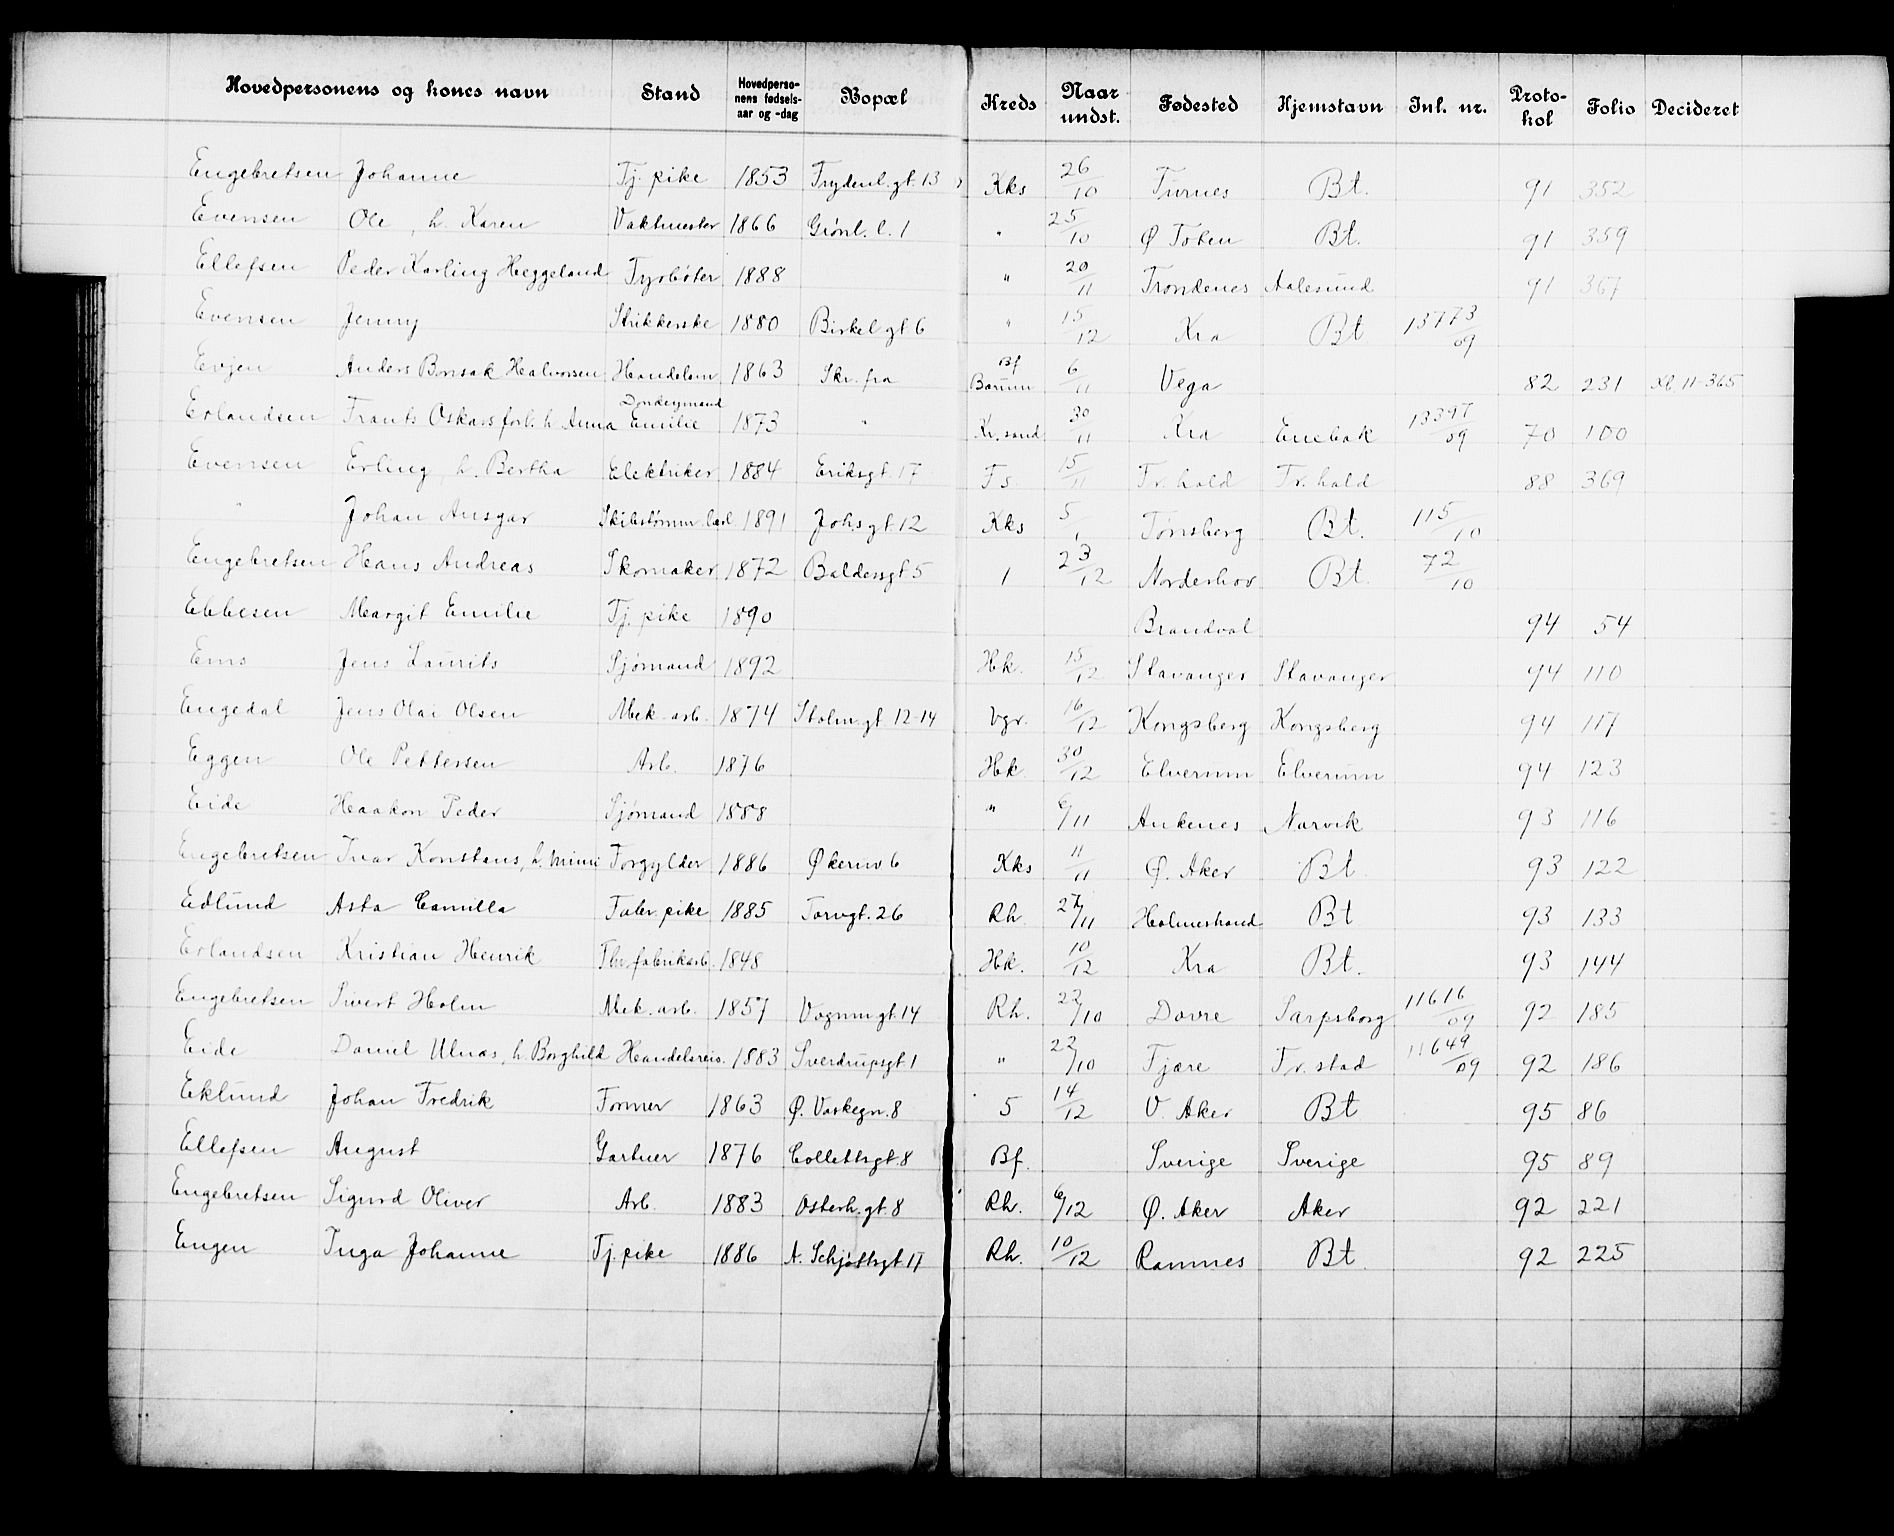 Hovedpersonens og kones navn | Stand | Hovedpersonens fødselsaar og -dag | Bopæl | Kreds | Naar undst. | Fødested | Hjemstavn | Int. nr. | Protokol | Folio | Decideret
Engebretsen Johanne | Tj. pike | 1853 | Frydenl. gt. 13 | Kks | 26/10 | Furnes | Bt. | 91 | 352
Evensen Ole, h. Karen | Vaktmester | 1866 | Grønl. l. 1 | " | 25/10 | Ø Toten | Bt. | 91 | 359
Ellefsen Peder Karling Heggeland | Fyrbøter | 1888 | " | 20/11 | Trondenes | Aalesund | 91 | 367
Evensen Jenny | Strikkerske | 1880 | Birkel. gt 6 | " | 15/12 | Kra | Bt | 13773/09
Evjen Anders Brusak Halvorsen | Handelsm | 1863 | Skr. fra | Bf Bærum | 6/11 | Vega | 82 | 231 | Kl. 11-365
Erlandsen Frants Oskar forl. h Anna Emilie | Donkeymand | 1873 | " | Kr. sand | 30/11 | Kra | Enebak | 13397/09 | 70 | 100
Evensen Erling, h. Bertha | Elektriker | 1884 | Eriksgt. 17 | Fs | 15/11 | Fr. hald | Fr. hald | 88 | 369
" Johan Ansgar | Skibstømm. | 1891 | Johs gt. 12 | Kks | 5/1 | Tønsberg | Bt. | 115/10
Engebretsen Hans Andreas | Skomaker | 1872 | Baldersgt 5 | 1 | 23/12 | Norderhov | Bt. | 72/10
Ebbesen Margit Emilie | Tj. pike | 1890 | Brandval | 94 | 54
Ems Jens Laurits | Sjømand | 1892 | Hk. | 15/12 | Stavanger | Stavanger | 94 | 110
Engedal Jens Olai Olsen | Mek. arb. | 1874 | Stolm. gt. 12-14 | Vgr. | 16/12 | Kongsberg | Kongsberg | 94 | 117
Eggen Ole Pettersen | Arb. | 1876 | Hk | 30/12 | Elverum | Elverum | 94 | 123
Eide Haakon Peder | Sjømand | 1888 | " | 6/11 | Ankenes | Narvik | 93 | 116
Engebretsen Ivar Konstans, h. Mimi | Forgylder | 1886 | Økernv 6 | Kks | 11/11 | Ø. Aker | Bt | 93 | 122
Edlund Asta Camilla | Fabr. pike | 1885 | Torvgt. 26 | Rh. | 27/11 | Holmestrand | Bt | 93 | 133
Erlandsen Kristian Henrik | Fhv. fabrikarb. | 1848 | Hk. | 10/12 | Kra | Bt. | 93 | 144
Engebretsen Sivert Holm | Mek. arb. | 1857 | Vognm gt. 14 | Rh. | 22/10 | Dovre | Sarpsborg | 11616/09 | 92 | 185
Eide Daniel Ulnas, h. Borghild | Handelsreis. | 1883 | Sverdrupsgt. 1 | " | 22/10 | Fjære | Fr. stad | 11649/09 | 92 | 186
Eklund Johan Fredrik | Former | 1863 | Ø. Vaskegn. 8 | 5 | 14/12 | V. Aker | Bt | 95 | 86
Ellefsen August | Gartner | 1876 | Collettsgt. 8 | Bf. | Sverige | Sverige | 95 | 89
Engebretsen Sigurd Oliver | Arb. | 1883 | Osterh. gt. 8 | Rh. | 6/12 | Ø. Aker | Aker | 92 | 221
Engen Inga Johanne | Tj. pike | 1886 | A. Schjøttsgt 17 | Rh. | 10/12 | Ramnes | Bt | 92 | 225